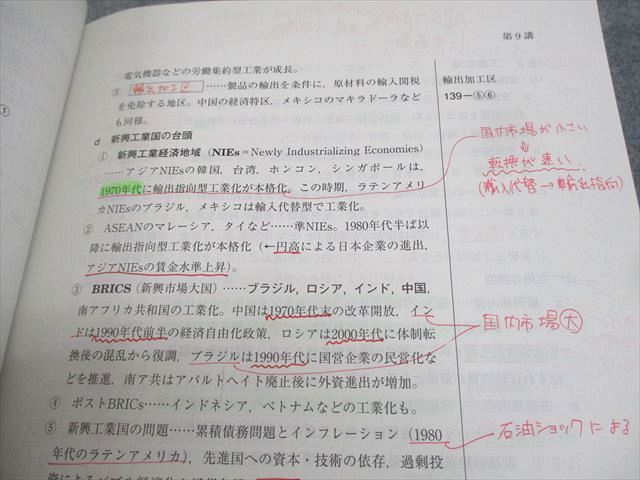 第9講
電気機器などの労働集約型工業が成長。
③ 輸出加工区 ……製品の輸出を条件に，原材料の輸入関税
を免除する地区。中国の経済特区，メキシコのマキラドーラなど
も同様。
輸出加工区
139－⑤⑥
d 新興工業国の台頭
① 新興工業経済地域（NIEs＝Newly Industrializing Economies）
……アジアNIEsの韓国，台湾，ホンコン，シンガポールは，
1970年代に輸出指向型工業化が本格化。この時期，ラテンアメリ
カNIEsのブラジル，メキシコは輸入代替型で工業化。
国内市場が小さい
⇓
転換が速い
(輸入代替→輸出指向)
② ASEANのマレーシア，タイなど……準NIEs。1980年代半ば以
降に輸出指向型工業化が本格化（←円高による日本企業の進出，
アジアNIEsの賃金水準上昇）。
③ BRICS（新興市場大国）……ブラジル，ロシア，インド，中国，
南アフリカ共和国の工業化。中国は1970年代末の改革開放，イン
ドは1990年代前半の経済自由化政策，ロシアは2000年代に体制転
換後の混乱から復調，ブラジルは1990年代に国営企業の民営化な
どを推進，南ア共はアパルトヘイト廃止後に外資進出が増加。
国内市場大
④ ポストBRICs……インドネシア，ベトナムなどの工業化も。
⑤ 新興工業国の問題……累積債務問題とインフレーション（1980
年代のラテンアメリカ），先進国への資本・技術の依存，過剰投
石油ショックによる
①